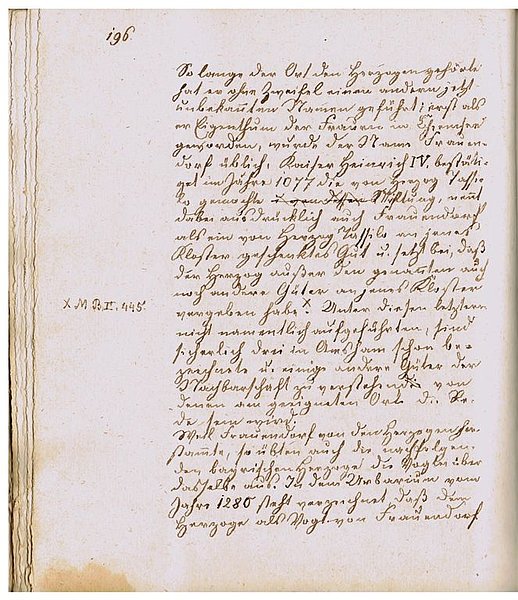 196.
So lange der Ort den Herzogen gehörte
hat er ohne Zweifel einen andern jetzt
unbekannten Namen geführt; erst als
er Eigenthum der Frauen in Chiemsee
geworden, wurde der Name Frauen-
dorf üblich. Kaiser Heinrich IV. bestäti-
get im Jahre 1077 die von Herzog Tassi-
lo gemachte Stiftung, nennt
dabei ausdrücklich auch Frauendorf
als ein von Herzog Tassilo an jenes
Kloster geschenktes Gut u. setzt bei, daß
der Herzog außer den genannten auch
noch andere Güter an jenes Kloster
vergeben habe. x Unter diesen letztern
x M. B. II. 445.
nicht namentlich aufgeführten, sind
sicherlich drei in Amsham schon be-
zeichnete u. einige andere Güter der
Nachbarschaft zu verstehen, von
denen am geeigneten Ort die Re-
de sein wird.
Weil Frauendorf von den Herzogen her-
stammte, so übten auch die nachfolgen-
den bayrischen Herzoge die Vogtei über
dasselbe aus. In dem Urbarium vom
Jahre 1280 steht verzeichnet, daß dem
Herzoge als Vogt von Frauendorf